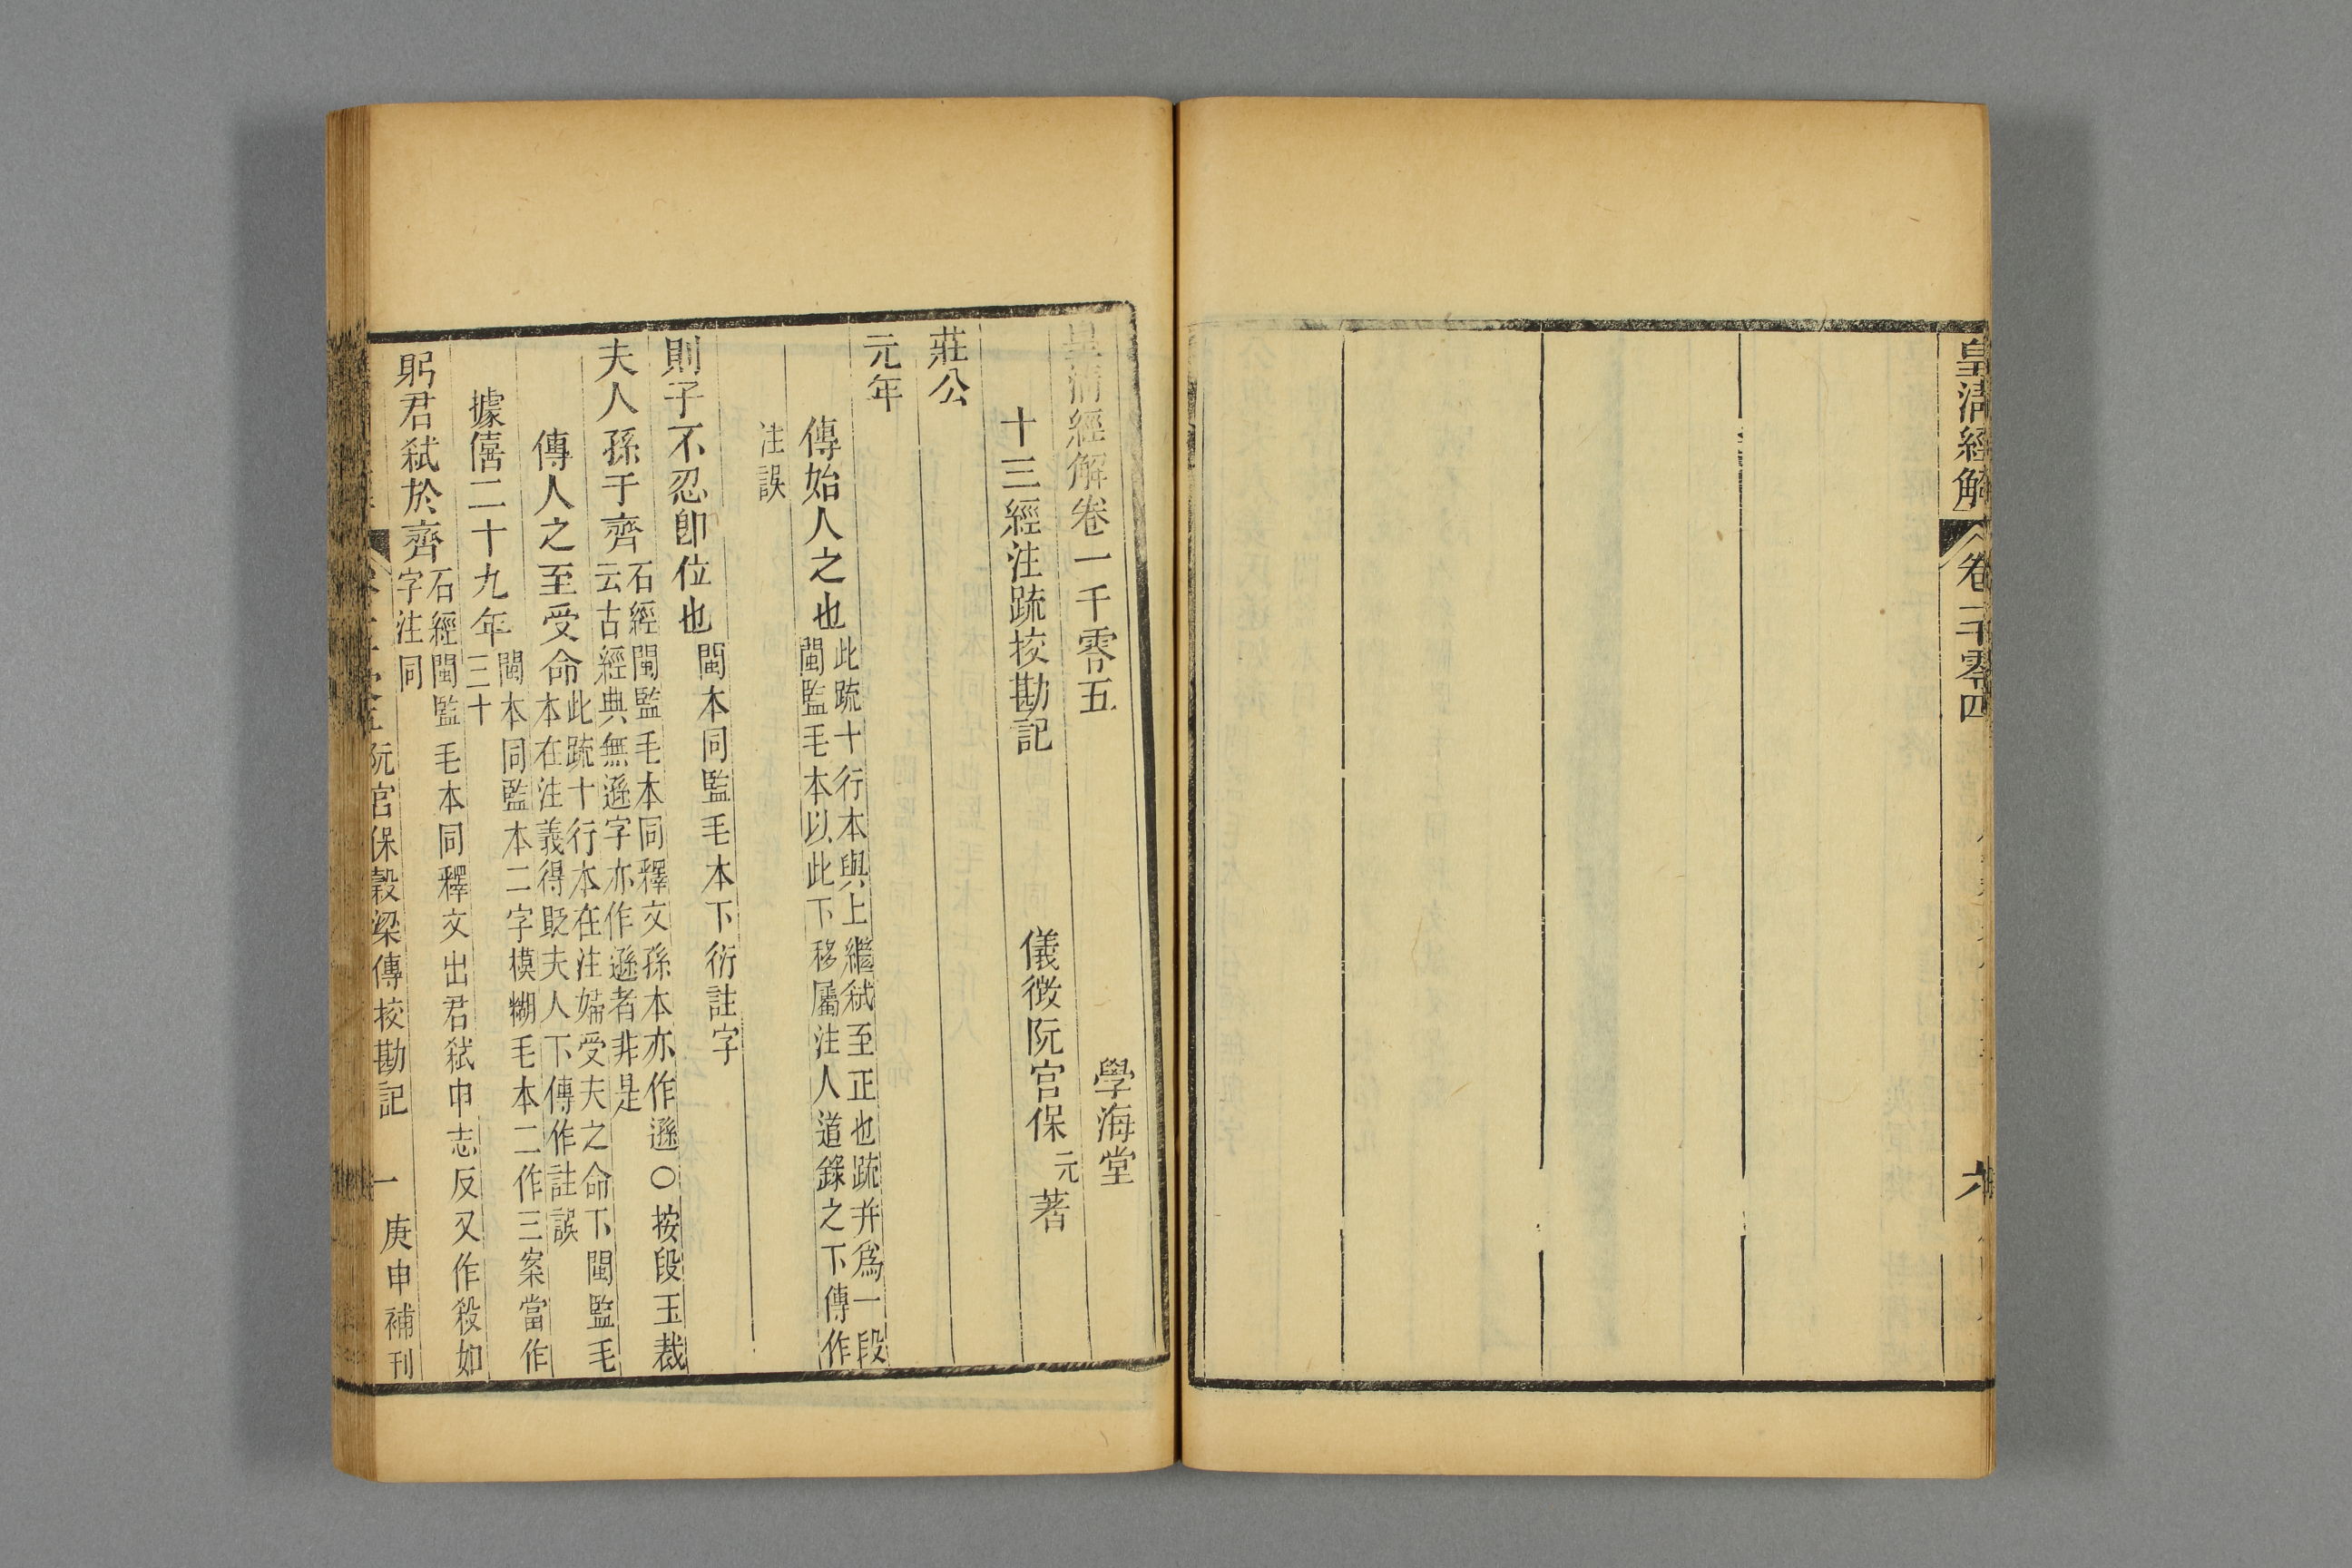 皇清經解
卷一千零四
六
皇清經解卷一千零五
學海堂
十三經注疏挍勘記
儀徵阮宮保元著
莊公
元年
傳始人之也此疏十行本與上繼弑至正也疏幷爲一段
閩監毛本以此下移屬注人道錄之下傳作
注誤
則子不忍卽位也閩本同監毛本下衍註字
夫人孫于齊石經閩監毛本同釋文孫本亦作遜○按段玉裁
云古經典無遜字亦作遜者非是
傳人之至受命此疏十行本在注婦受夫之命下閩監毛
本在注義得貶夫人下傳作註誤
據僖二十九年閩本同監本二字模糊毛本二作三案當作
三十
躬君弑於齊石經閩監毛本同釋文出君弑申志反又作殺如
字注同
阮宮保穀梁傳挍勘記
一
庚申補刊